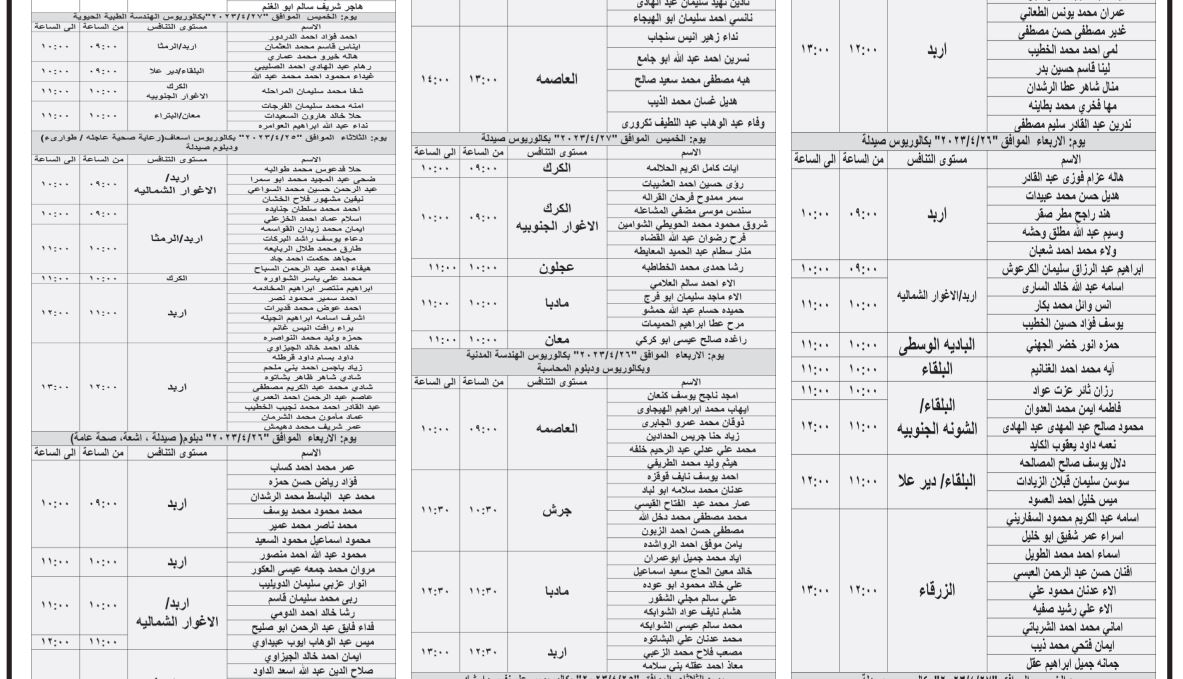 عمران محمد يونس الطعاني
غدير مصطفى حسن مصطفى
لمى احمد محمد الخطيب
اربد ١٢:٠٠ ١٣:٠٠
لينا قاسم حسين بدر
منال شاهر عطا الرشدان
مها فخري محمد بطاينه
ندرين عبد القادر سليم مصطفى
يوم: الاربعاء الموافق "٢٠٢٣/٤/٢٦" بكالوريوس صيدلة
الاسم مستوى التنافس من الساعة الى الساعة
هاله عزام فوزى عبد القادر
هديل حسن محمد عبيدات
هند راجح مطر صقر
اربد ٠٩:٠٠ ١٠:٠٠
وسيم عبد الله مطلق وحشه
ولاء محمد احمد شعبان
ابراهيم عبد الرزاق سليمان الكرعوش ٠٩:٠٠ ١٠:٠٠
اسامه عبد الله خالد السارى
اربد/الاغوار الشماليه
انس وائل محمد بكار ١٠:٠٠ ١١:٠٠
يوسف فؤاد حسين الخطيب
حمزه انور خضر الجهني الباديه الوسطى ١٠:٠٠ ١١:٠٠
آيه محمد احمد الغنانيم البلقاء ١٠:٠٠ ١١:٠٠
رزان ثائر عزت عواد ١٠:٠٠ ١١:٠٠
فاطمه ايمن محمد العدوان
البلقاء/ الشونه الجنوبيه
محمود صالح عبد المهدى عبد الهادى ١١:٠٠ ١٢:٠٠
نعمه داود يعقوب الكايد
دلال يوسف صالح المصالحه
سوسن سليمان قبلان الزيادات البلقاء/ دير علا ١١:٠٠ ١٢:٠٠
ميس خليل احمد العسود
اسامه عبد الكريم محمود السفاريني
اسراء عمر شفيق ابو خليل
اسماء احمد محمد الطويل
افنان حسن عبد الرحمن العبسي
الاء عدنان محمود علي
الزرقاء ١٢:٠٠ ١٣:٠٠
الاء علي رشيد صفيه
اماني محمد احمد الشرباتي
ايمان فتحي محمد ذيب
جمانه جميل ابراهيم عقل
نادين نهيد سليمان عبد الهادى
نانسي احمد سليمان ابو الهيجاء
نداء زهير انيس سنجاب
نسرين احمد عبد الله ابو جامع
هبه مصطفى محمد سعيد صالح
العاصمه ١٣:٠٠ ١٤:٠٠
هديل غسان محمد الذيب
وفاء عبد الوهاب عبد اللطيف تكرورى
يوم: الخميس الموافق "٢٠٢٣/٤/٢٧" بكالوريوس صيدلة
الاسم مستوى التنافس من الساعة الى الساعة
ايات كامل اكريم الحلالمه الكرك ٠٩:٠٠ ١٠:٠٠
رؤى حسين احمد العشيبات
سمر ممدوح فرحان القراله
سندس موسى مضفي المشاعله
الكرك الاغوار الجنوبيه ٠٩:٠٠ ١٠:٠٠
شروق محمود محمد الحويطي الشوامين
فرح رضوان عبد الله القضاه
منار سطام عبد الحميد المعايطه
رشا حمدى محمد الخطاطبه عجلون ١٠:٠٠ ١١:٠٠
الاء احمد سالم العلامي
الاء ماجد سليمان ابو فرج
مادبا ١٠:٠٠ ١١:٠٠
حميده حسام عبد الله حمشو
مرح عطا ابراهيم الحميمات
راغده صالح عيسى ابو كركي معان ١٠:٠٠ ١١:٠٠
يوم: الاربعاء الموافق "٢٠٢٣/٤/٢٦" بكالوريوس الهندسة المدنية
وبكالوريوس ودبلوم المحاسبة
الاسم مستوى التنافس من الساعة الى الساعة
امجد ناجح يوسف كنعان
ايهاب محمد ابراهيم الهيجاوى
ذوقان محمد عمرو الجابرى
العاصمه ٠٩:٠٠ ١٠:٠٠
زياد حنا جريس الحدادين
محمد علي عدلي عبد الرحيم خلفه
هيثم وليد محمد الطريفي
احمد يوسف نايف قوقزه
عدنان محمد سلامه ابو لباد
عمار محمد عبد الفتاح القيسي
جرش ١٠:٣٠ ١١:٣٠
محمد مصطفى محمد دخل الله
مصطفى حسن احمد الزبون
يامن موفق احمد الرواشده
اياد محمد جميل ابوعمران
خالد معين الحاج سعيد اسماعيل
علي خالد محمود ابو عوده
مادبا ١١:٣٠ ١٢:٣٠
علي سالم مجلي الشقور
هشام نايف عواد الشوابكه
محمد سالم عيسى الشوابكه
محمد عدنان علي البشاتوه
مصعب فلاح محمد الزعبي اربد ١٢:٣٠ ١٣:٠٠
معاذ احمد عقله بني سلامه
هاجر شريف سالم ابو الغنم
يوم: الخميس الموافق "٢٠٢٣/٤/٢٧" بكالوريوس الهندسة الطبية الحيوية
الاسم مستوى التنافس من الساعة الى الساعة
احمد فؤاد احمد الدردور
ايناس قاسم محمد العثمان اربد/الرمثا ٠٩:٠٠ ١٠:٠٠
هاله خيرو محمد عمارى
رهام عبد الهادي احمد الصليبي
البلقاء/دير علا ٠٩:٠٠ ١٠:٠٠
غيداء محمود احمد محمد عبد الله
شفا محمد سليمان المراحله الكرك الاغوار الجنوبيه ١٠:٠٠ ١١:٠٠
امنه محمد سليمان الفرجات
حلا خالد هارون السعيدات معان/البتراء ١٠:٠٠ ١١:٠٠
نداء عبد الله ابراهيم العوامره
يوم: الثلاثاء الموافق "٢٠٢٣/٤/٢٥" بكالوريوس اسعاف(رعاية صحية عاجله / طوارىء)
ودبلوم صيدلة
الاسم مستوى التنافس من الساعة الى الساعة
حلا فدعوس محمد طوالبه
ضحى عبد المجيد محمد ابو سمرا
اربد/ الاغوار الشماليه ٠٩:٠٠ ١٠:٠٠
عبد الرحمن حسين محمد السواعي
نيفين مشهور فلاح الخشان
احمد محمد سلطان جنايده
٠٩:٠٠ ١٠:٠٠
اسلام عماد احمد الخزعلي
ايمان محمد زيدان القواسمه
اربد/الرمثا
دعاء يوسف راشد البركات
طارق محمد طلال الربايعه ١٠:٠٠ ١١:٠٠
مجاهد حكمت احمد جاد
هيفاء احمد عبد الرحمن السباح
محمد علي ياسر الشواوره الكرك ١٠:٠٠ ١١:٠٠
ابراهيم منتصر ابراهيم المخادمه
احمد سمير محمود نصر
احمد عوض محمد قديرات
اربد ١١:٠٠ ١٢:٠٠
اشرف اسامه ابراهيم انجيله
براء رافت انيس غانم
حمزه وليد محمد النواصره
خالد احمد خالد الجيزاوي
داود بسام داود قرطله
زياد باجس احمد بني ملحم
شادي شاهر ظاهر بشاتوه
شادي محمد عبد الكريم مصطفى
اربد ١٢:٠٠ ١٣:٠٠
عاصم عبد الرحمن احمد العمري
عبد القادر احمد محمد نجيب الخطيب
عماد مأمون محمد الشرمان
عمر شريف محمد دهيمش
يوم: الاربعاء الموافق "٢٠٢٣/٤/٢٦" دبلوم( صيدلة ، اشعة، صحة عامة)
الاسم مستوى التنافس من الساعة الى الساعة
عمر محمد احمد كساب
فؤاد رياض حسن حمزه
محمد عبد الباسط محمد الرشدان
اربد ٠٩:٠٠ ١٠:٠٠
محمد محمود محمد يوسف
محمد ناصر محمد عمير
محمود اسماعيل محمود السعيد
محمود عبد الله احمد منصور
اربد ١٠:٠٠ ١١:٠٠
مروان محمد جمعه عيسى العكور
انوار عزبي سليمان الدويليب
ربى محمد سليمان قاسم
اربد/ الاغوار الشماليه ١٠:٠٠ ١١:٠٠
رشا خالد احمد الدومي
فداء فايق عبد الرحمن ابو صليح
ميس عبد الوهاب ايوب عبيداوي ١١:٠٠ ١٢:٠٠
ايمان احمد خالد الجيزاوي
صلاح الدين عبد الله اسعد الداود